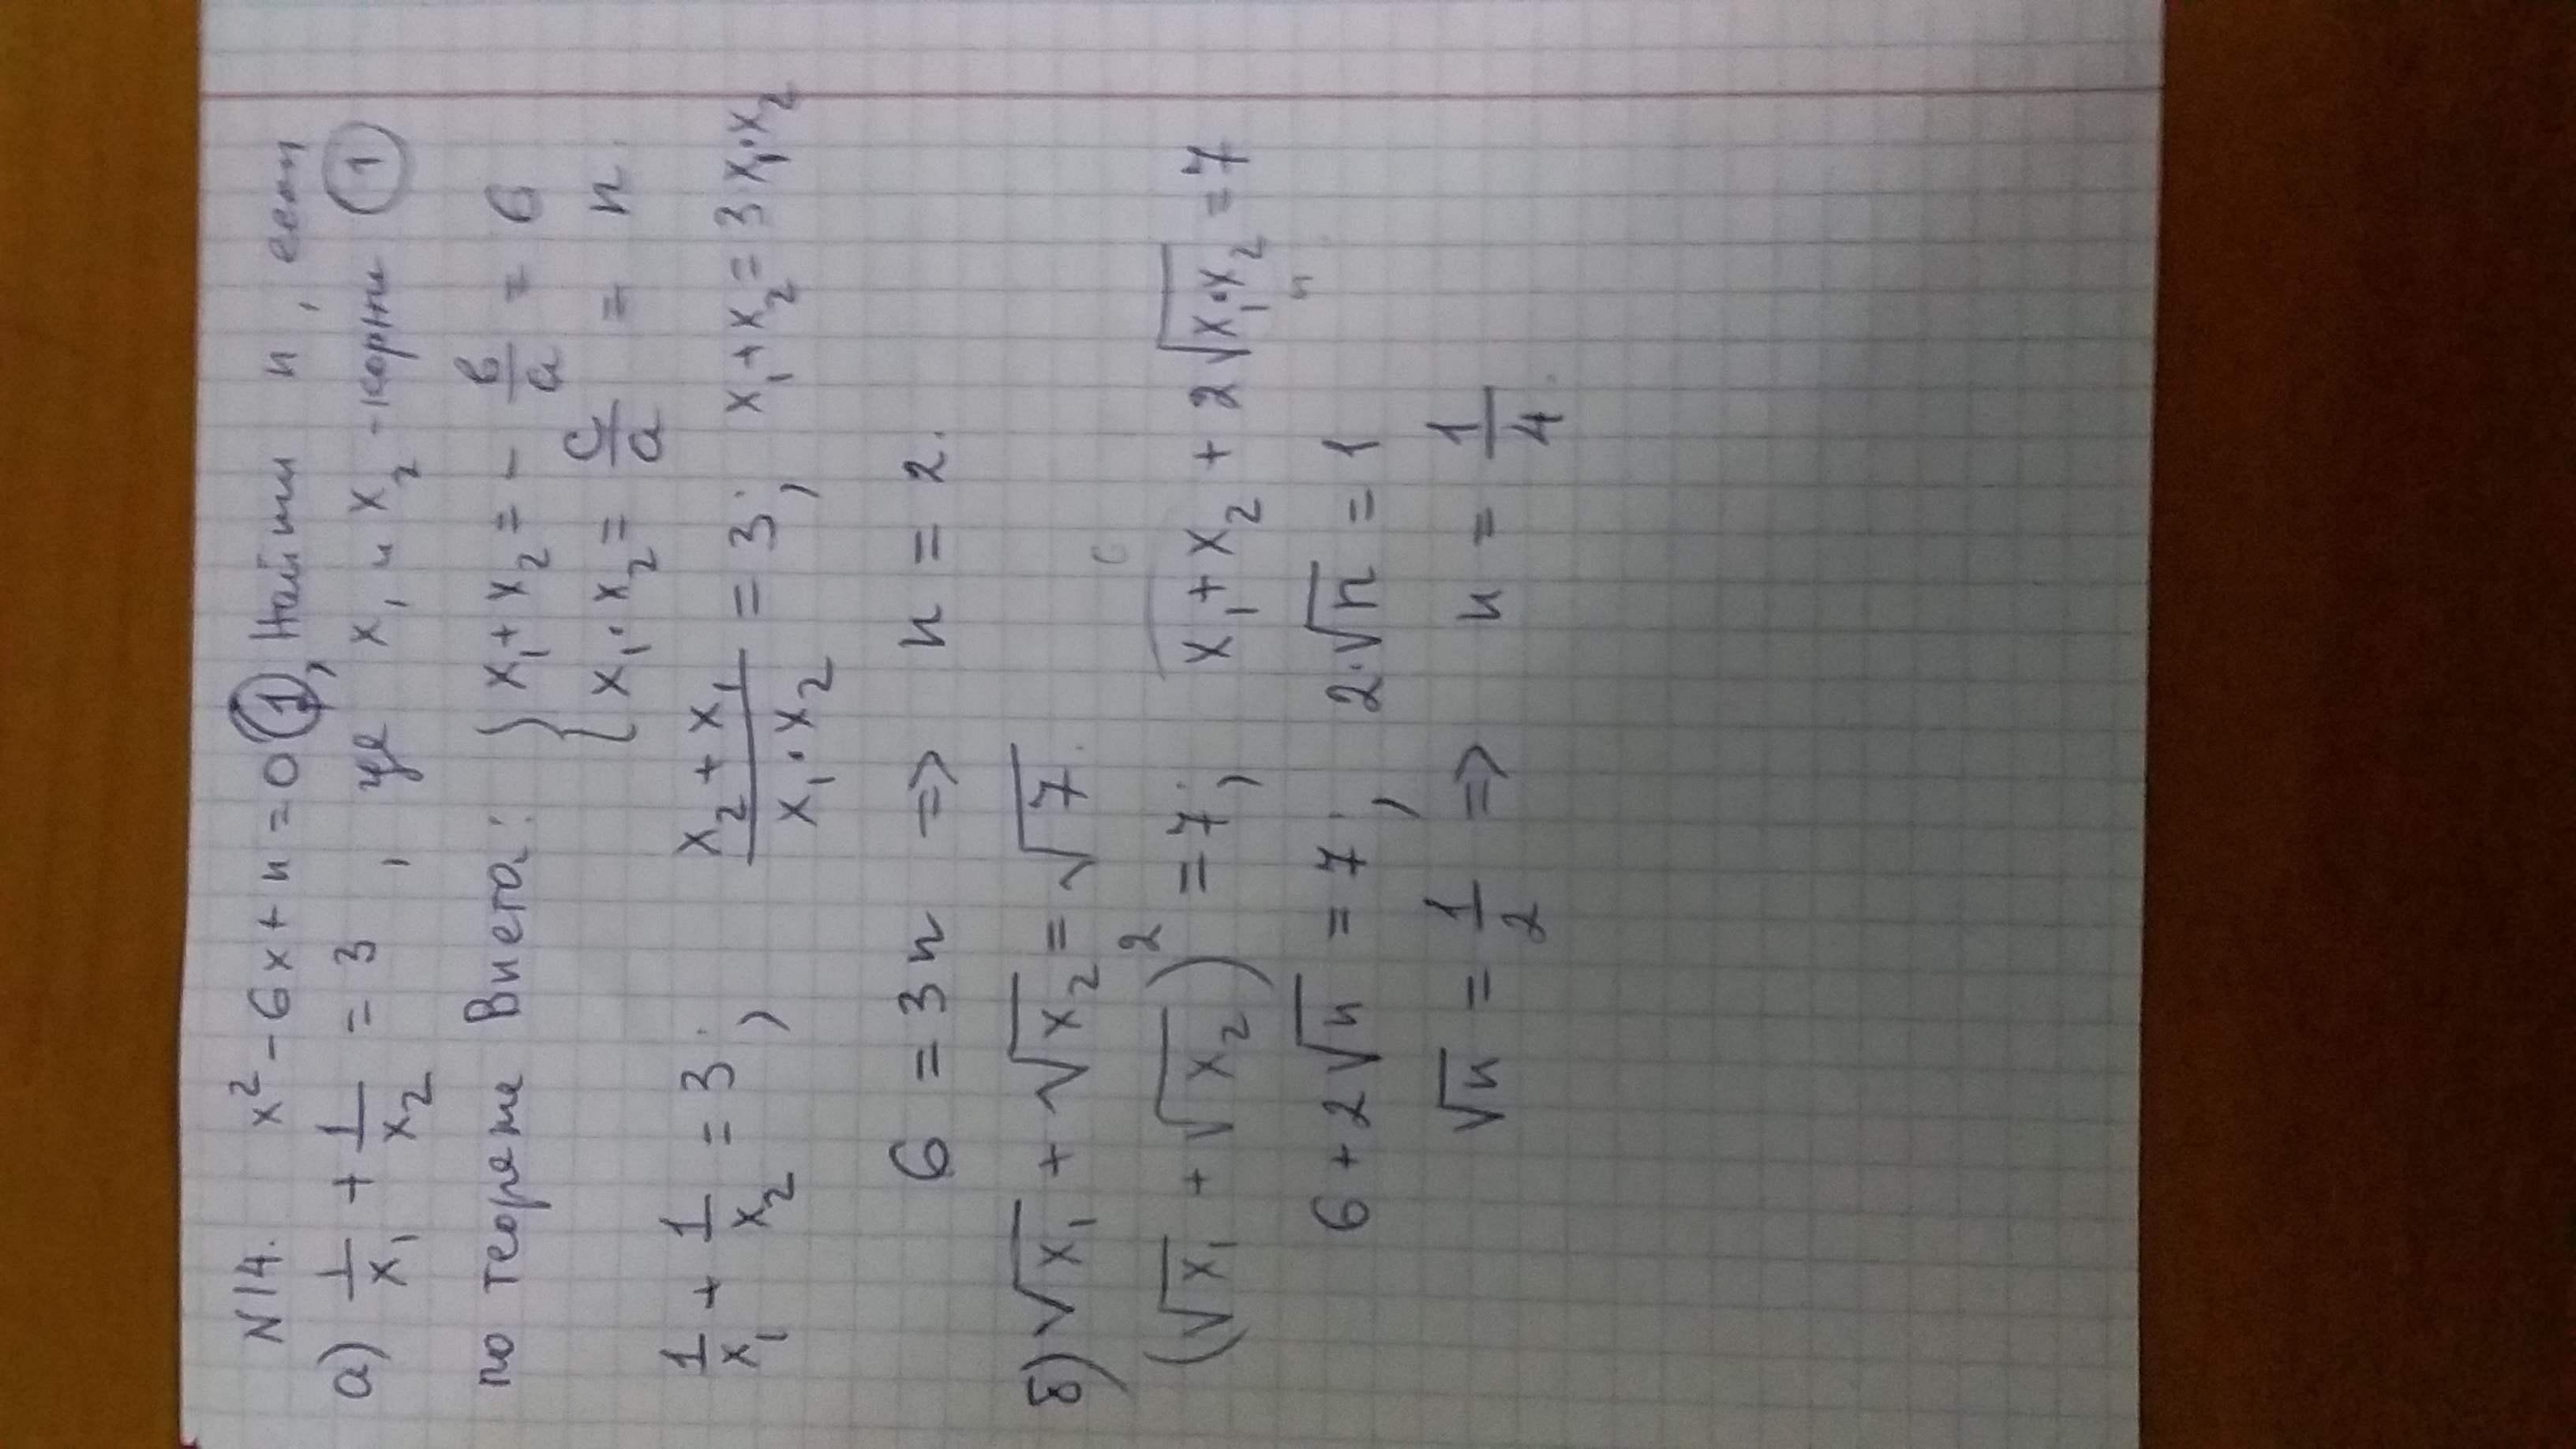 N14. x² - 6x + n = 0 (1), Найти n, если
а) 1/x₁ + 1/x₂ = 3, где x₁ и x₂ - корни (1)
по теореме Виета: { x₁ + x₂ = - в/а = 6
{ x₁ · x₂ = c/a = n.
1/x₁ + 1/x₂ = 3; (x₂ + x₁)/(x₁ · x₂) = 3; x₁ + x₂ = 3x₁·x₂
6 = 3n => n = 2.
б) √x₁ + √x₂ = √7.
6
(√x₁ + √x₂)² = 7; x₁ + x₂ + 2√x₁·x₂ = 7
n
6 + 2√n = 7; 2·√n = 1
√n = 1/2 => n = 1/4.